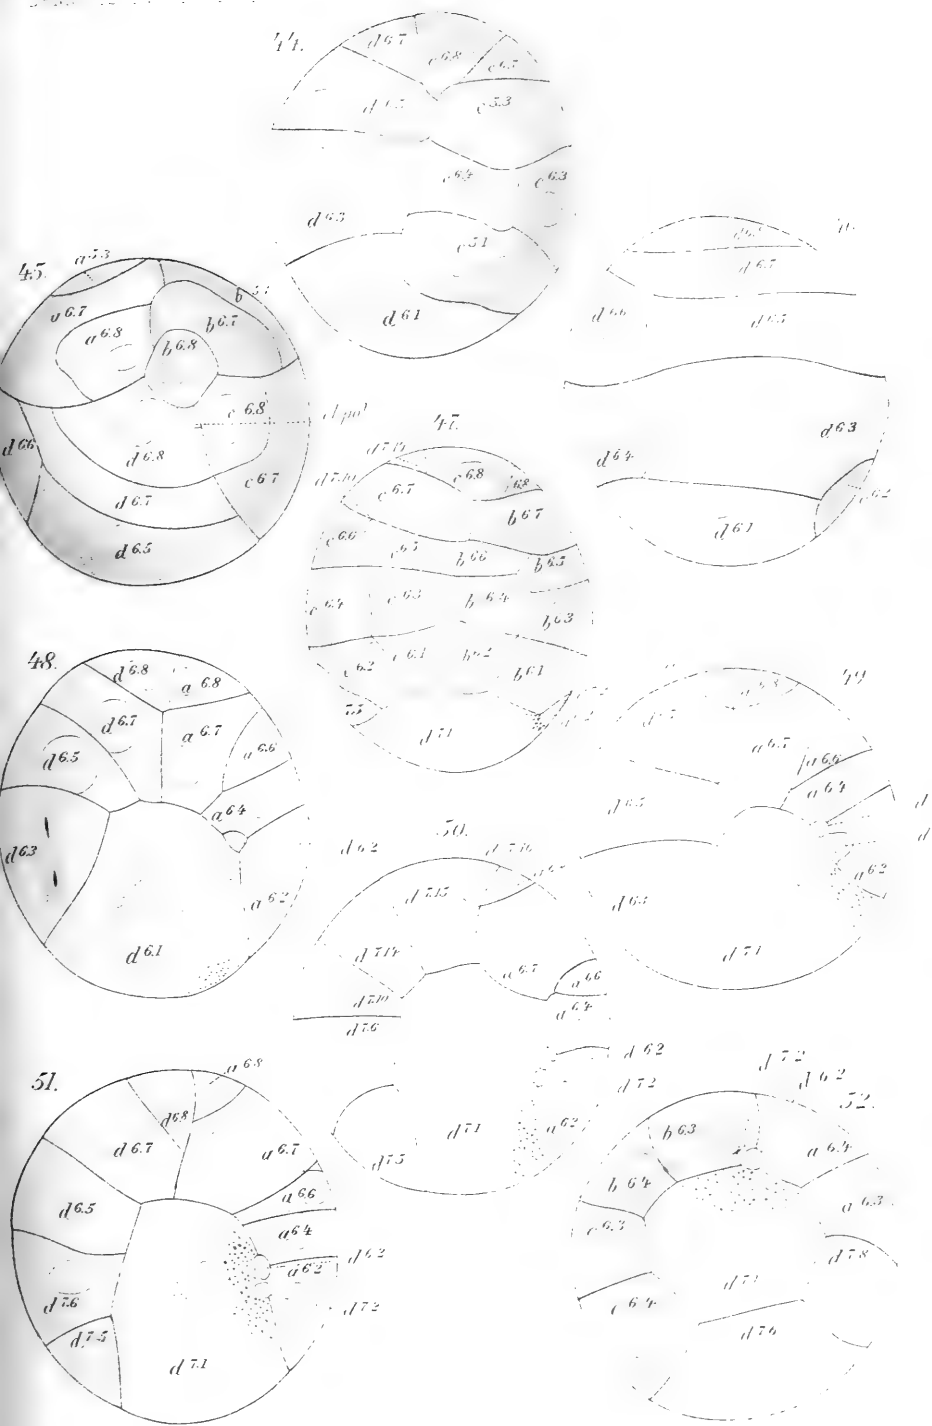 44.
d 6.7
c 6.8
c 6.7
c 5.3
c 6.4
c 6.3
d 6.3
c 5.1
d 6.1
45.
a 5.3
a 6.7
a 6.8
b 6.7
b 6.8
c 6.8
d 6.6
d 6.8
c 6.7
d 6.7
d 6.5
d 6.7
d 6.6
d 6.5
d 6.3
d 6.4
c 6.2
d 6.1
47.
d 7.14
d 7.10
c 6.7
c 6.8
b 6.7
c 6.6
c 6.5
b 6.6
b 6.5
c 6.4
c 6.3
b 6.4
b 6.3
c 6.2
c 6.1
b 6.2
b 6.1
7.5
d 7.1
48.
d 6.8
a 6.8
d 6.7
a 6.7
a 6.6
d 6.5
a 6.4
d 6.3
a 6.2
d 6.1
49
a 6.8
a 6.7
a 6.6
a 6.4
d 6.5
a 6.2
d 6.3
d 7.1
50.
d 6.2
d 7.16
d 7.15
d 7.14
a 6.7
a 6.6
a 6.4
d 7.10
d 7.6
d 6.2
d 7.2
d 7.1
a 6.2
d 7.5
51.
a 6.8
d 6.8
d 6.7
a 6.7
a 6.6
d 6.5
a 6.4
a 6.2
d 6.2
d 7.6
d 7.2
d 7.5
d 7.1
52.
d 7.2
d 6.2
b 6.3
a 6.4
b 6.4
a 6.3
c 6.3
d 7.8
d 7.1
c 6.4
d 7.6